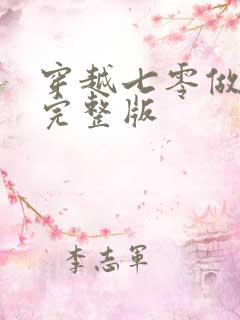 穿越七零做
完整版
李志軍